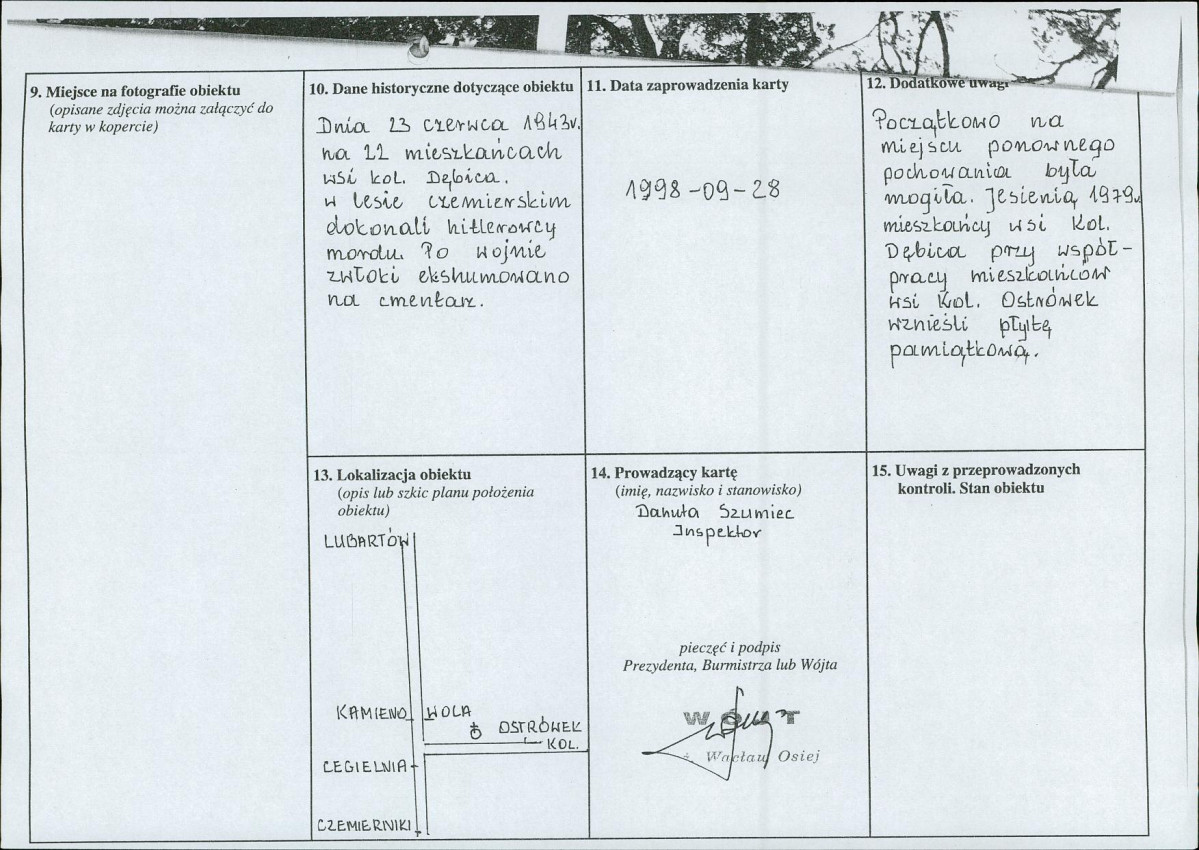 9. Miejsce na fotografie obiektu
(opisane zdjęcia można załączyć do
karty w kopercie)
10. Dane historyczne dotyczące obiektu
Dnia 23 czerwca 1943r.
na 22 mieszkańcach
wsi kol. Dębica.
w lesie czemierskim
dokonali hitlerowcy
mordu. Po wojnie
zwłoki ekshumowano
na cmentarz.
11. Data zaprowadzenia karty
1998-09-28
12. Dodatkowe uwagi
Początkowo na
miejscu ponownego
pochowania była
mogiła. Jesienią 1979r
mieszkańcy wsi Kol.
Dębica przy współ-
pracy mieszkańców
wsi Kol. Ostrówek
wznieśli płytę
pamiątkową.
13. Lokalizacja obiektu
(opis lub szkic planu położenia
obiektu)
LUBARTÓW
KAMIENO WOLA
OSTRÓWEK
KOL.
CEGIELNIA
CZEMIERNIKI
14. Prowadzący kartę
(imię, nazwisko i stanowisko)
Danuta Szumiec
Inspektor
pieczęć i podpis
Prezydenta, Burmistrza lub Wójta
WÓJT
Wacław Osiej
15. Uwagi z przeprowadzonych
kontroli. Stan obiektu